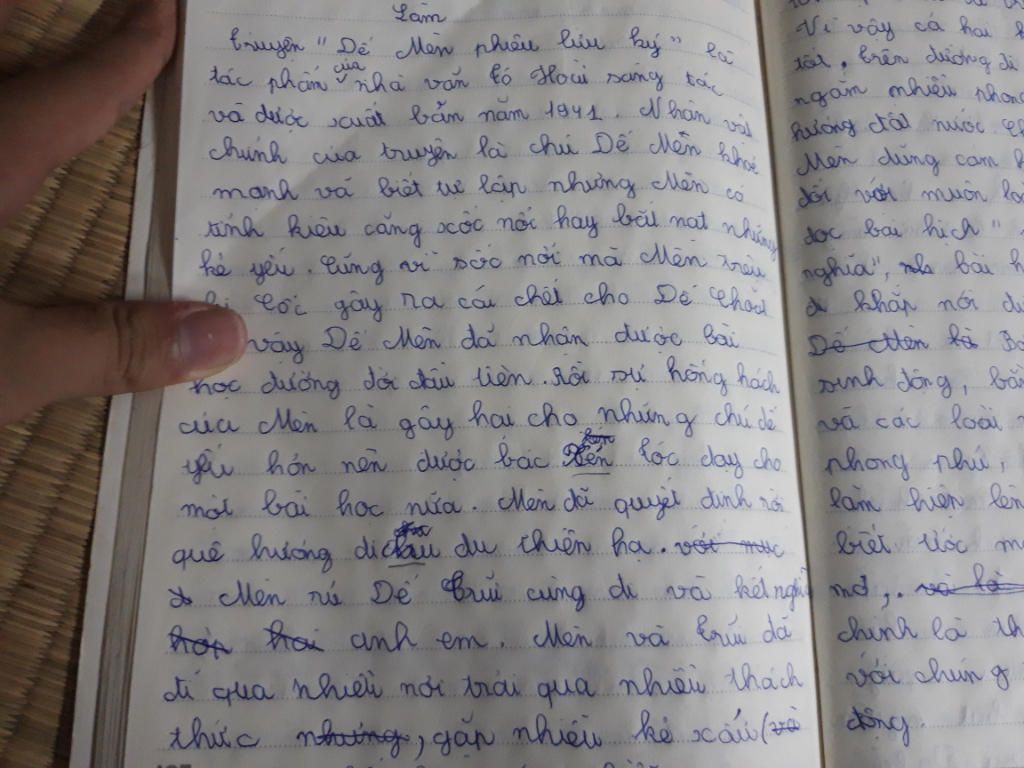 Làm
truyện "Dế Mèn phiêu lưu ký" là
tác phẩm của nhà văn Tô Hoài sáng tác
và được xuất bản năm 1941. Nhân vật
chính của truyện là chú Dế Mèn khoẻ
mạnh và biết tự lập nhưng Mèn có
tính kiêu căng xốc nổi hay bắt nạt những
kẻ yếu. Cũng vì sốc nổi mà Mèn trêu
Cốc gây ra cái chết cho Dế Choắt
vậy Dế Mèn đã nhận được bài
học đường đời đầu tiên. Rồi sự hống hách
của Mèn là gây hại cho những chú dế
yếu hơn nên được bác Xén tóc dạy cho
một bài học nữa. Mèn đã quyết định rời
quê hương đi du thiên hạ. với mục
Mèn rủ Dế Trũi cùng đi và kết nghĩ
hơn hai anh em. Mèn và Trũi đã
đi qua nhiều nơi trải qua nhiều thách
thức những, gặp nhiều kẻ xấu (và
Vì vậy cả hai
tốt. trên đường đi
ngắm nhiều phong
hương đất nước
Mèn dũng cảm
đối với muôn loà
đọc bài hịch "
nghĩa", bài h
khắp nơi đư
Dế Mèn là
sinh động, bằ
và các loài
phong phú,
làm hiện lên
biết ước m
mơ, . và là
chính là th
với chúng
động.